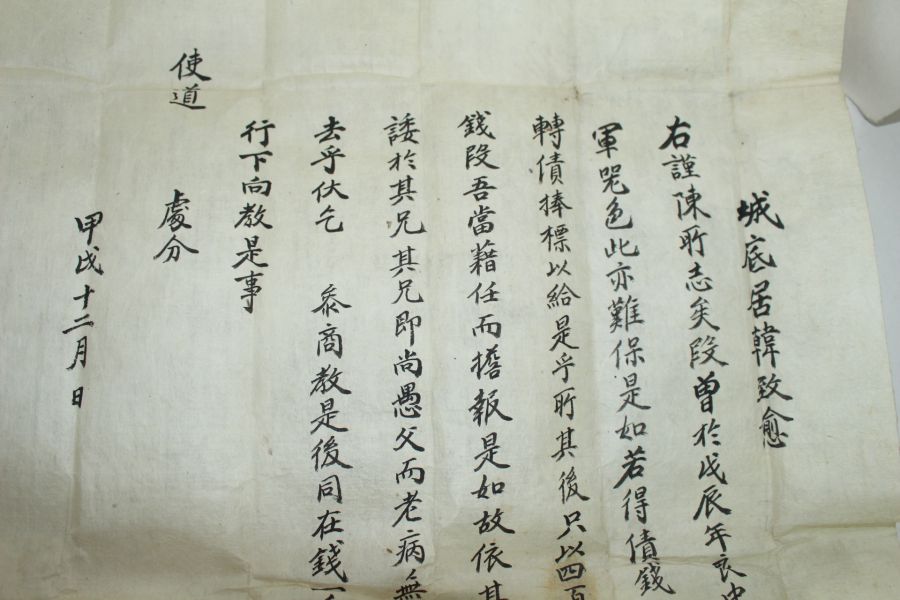 城底居韓致愈
右謹陳所志矣段曾於戊辰年良中
軍器色此亦難保是如若得債錢
轉債捧標以給是乎所其後只以四百
錢段吾當藉任而擔報是如故依其
諉於其兄其兄即尚愚父而老病無
去乎伏乞 叅商教是後同在錢一
行下向教是事
使道 處分
甲戌十二月 日